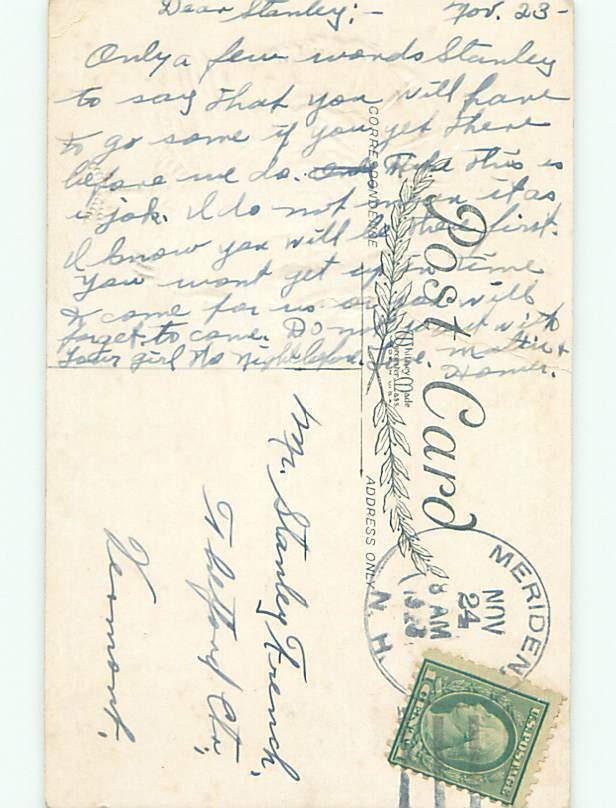 Dear Stanley:- Nov. 23-
Only a few words Stanley
to say that you will have
to go some if you get there
before we do. Take this as
a joke. I do not mean it as
I know you will be there first.
You wont get up in time
to come for us or you will
forget to come. Do not sit with
your girl the night before. Love. Mattie +
Homer.
CORRESPONDENCE
Post Card
Whitney Made
Worcester Mass.
ADDRESS ONLY
Mr. Stanley French,
Thetford Ctr.
Vermont.
MERIDEN,
NOV
24
8 AM
N. H.
U.S. POSTAGE
1 CENT 1